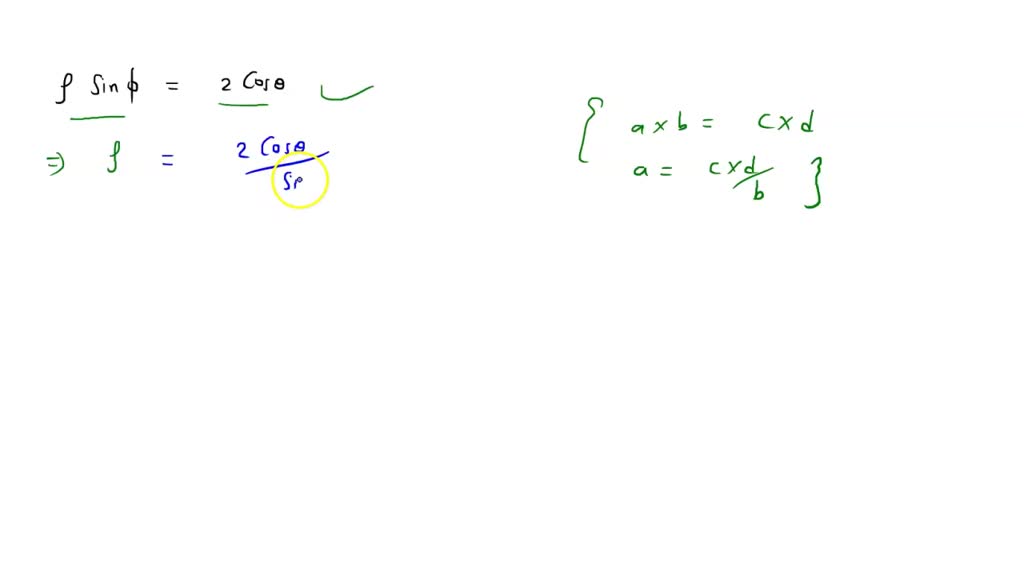 ρ Sin φ = 2 Cosθ
⇒ ρ = 2 Cosθ / Si
{ a × b = c × d
a = c × d / b }